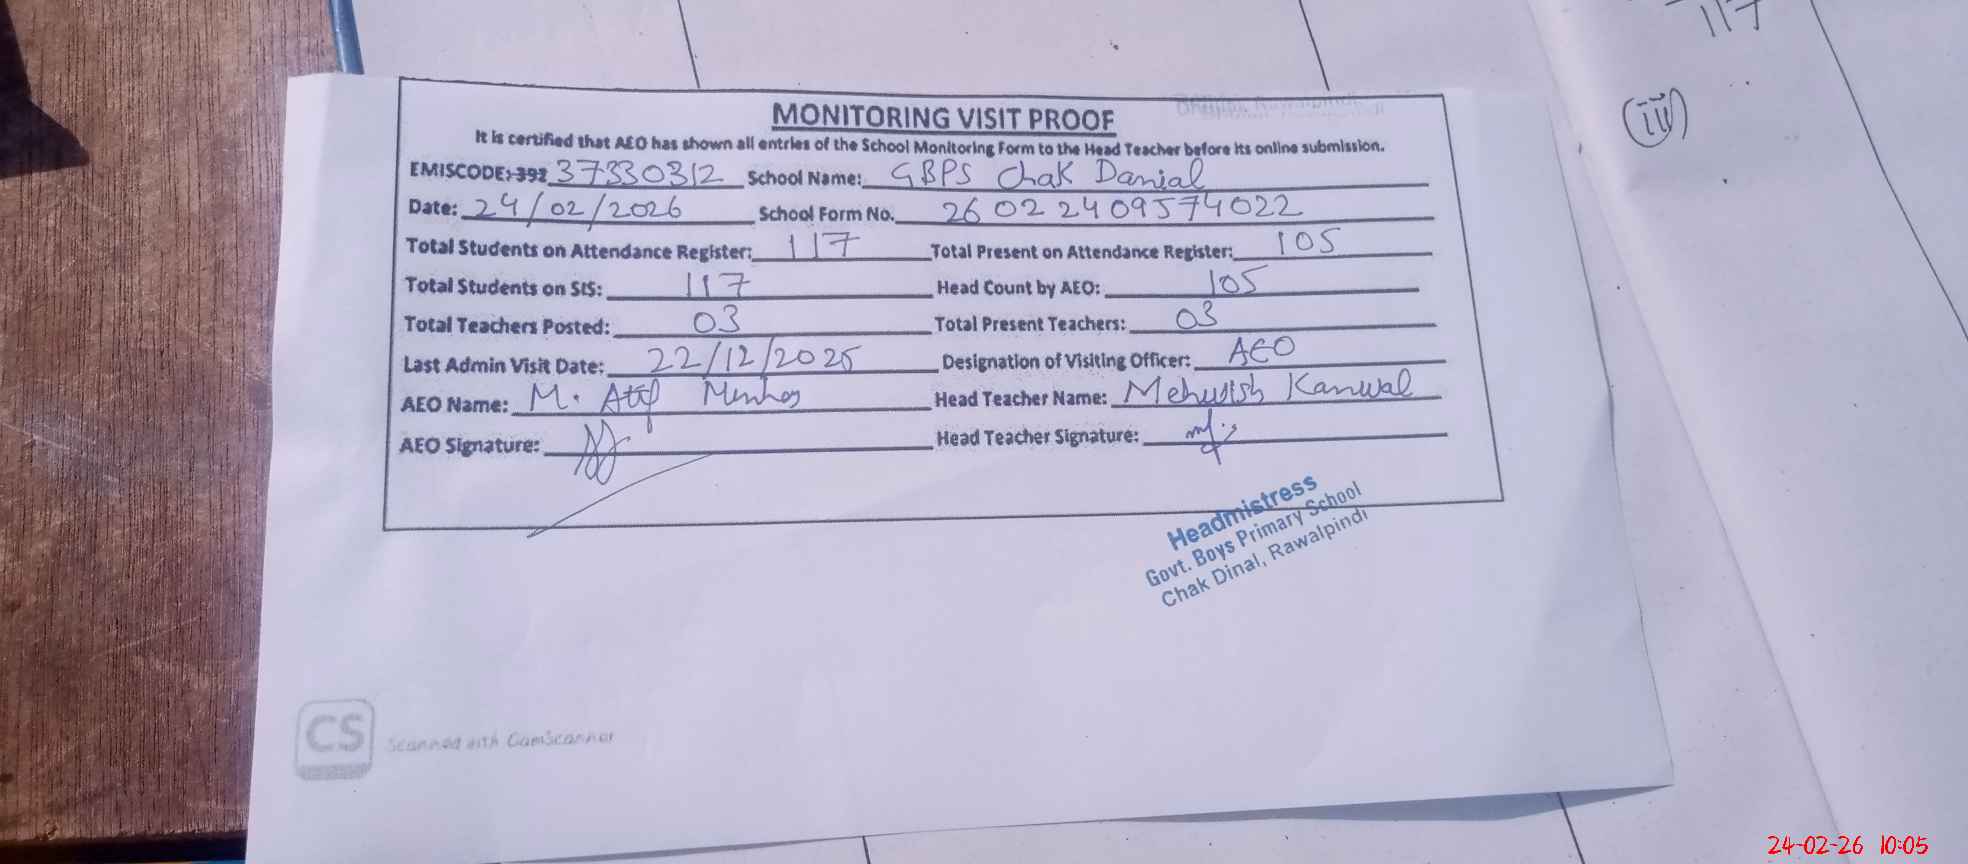 117
(iii)
MONITORING VISIT PROOF
It is certified that AEO has shown all entries of the School Monitoring Form to the Head Teacher before its online submission.
EMISCODE:-392 37330312 School Name: GBPS Chak Danial
Date: 24/02/2026 School Form No. 26 02 2409574022
Total Students on Attendance Register: 117 Total Present on Attendance Register: 105
Total Students on SIS: 117 Head Count by AEO: 105
Total Teachers Posted: 03 Total Present Teachers: 03
Last Admin Visit Date: 22/12/2025 Designation of Visiting Officer: AEO
AEO Name: M. Atif Head Teacher Name: Mehwish Kanwal
AEO Signature: Head Teacher Signature:
Headmistress
Govt. Boys Primary School
Chak Dinal, Rawalpindi
CS Scanned with CamScanner
24-02-26 10:05